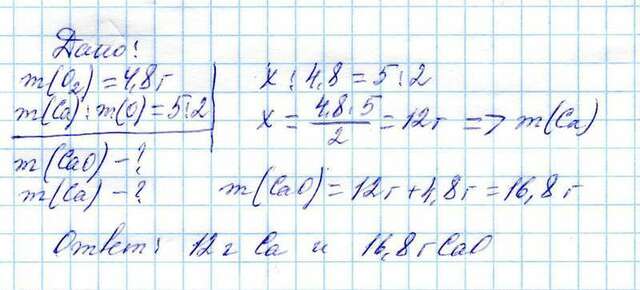 Дано:
m(O₂) = 4,8 г
m(Ca) : m(O) = 5:2
m(CaO) - ?
m(Ca) - ?
x : 4,8 = 5 : 2
x = \frac{4,8 · 5}{2} = 12 г => m(Ca)
m(CaO) = 12 г + 4,8 г = 16,8 г
Ответ: 12 г Ca и 16,8 г CaO